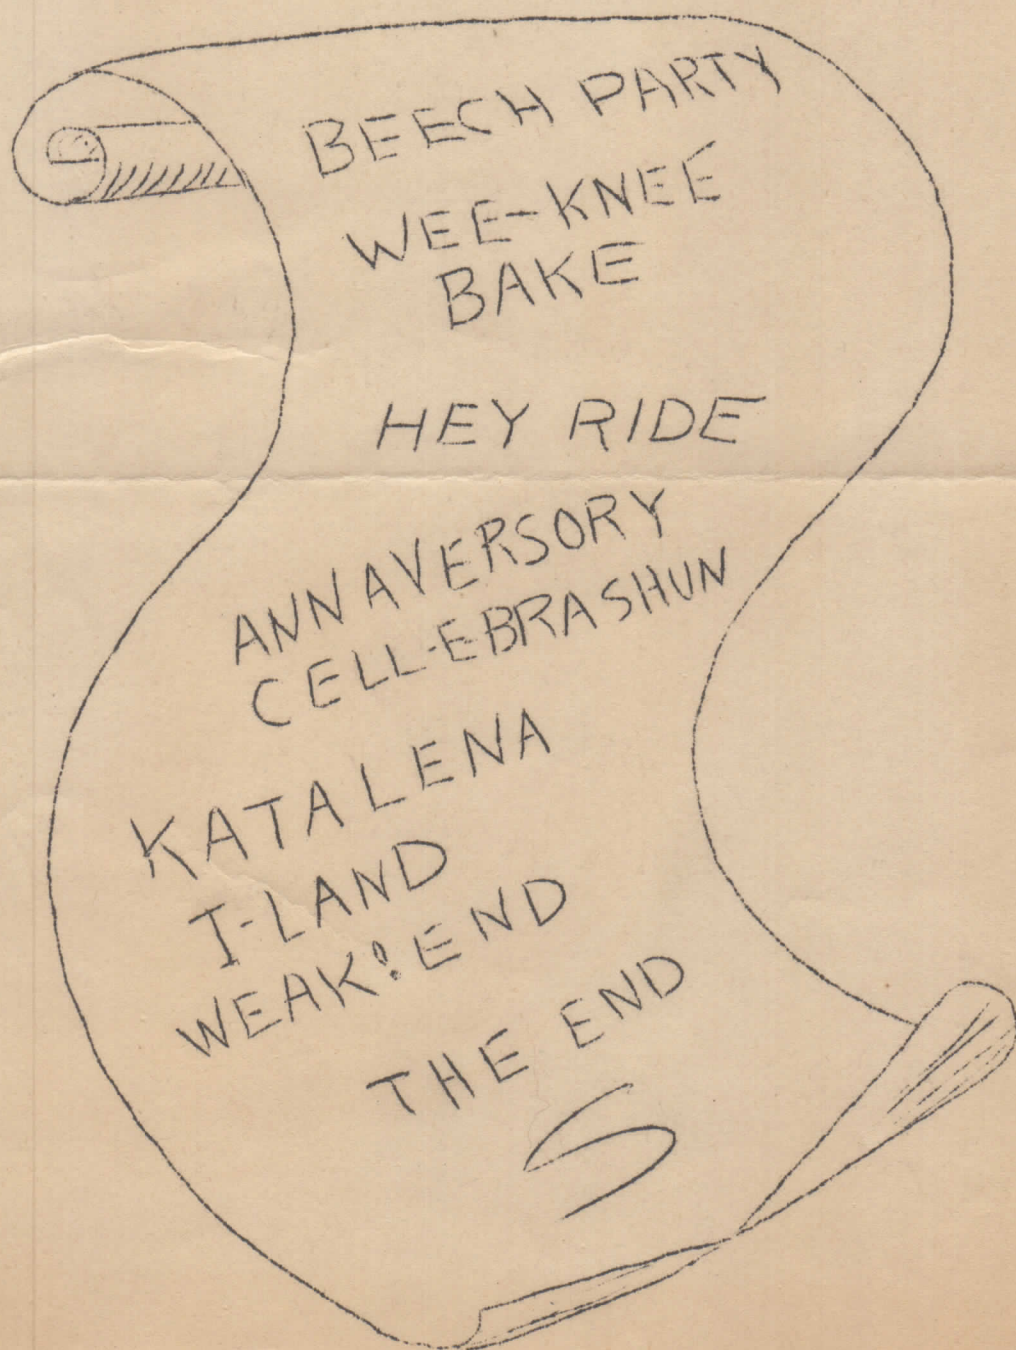 BEECH PARTY
WEE-KNEE
BAKE
HEY RIDE
ANNAVERSORY
CELL-EBRASHUN
KATALENA
I-LAND
WEAK!END
THE END
S